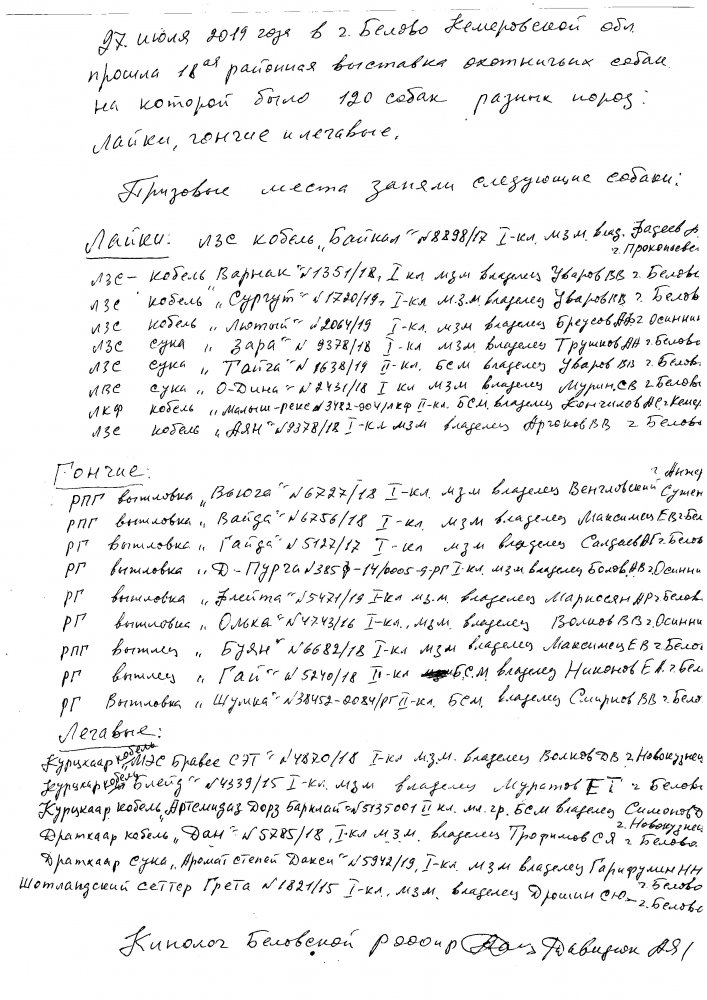 27 июля 2019 года в г. Белово Кемеровской обл
прошла 18ая районная выставка охотничьих собак
на которой было 120 собак разных пород:
Лайки, гончие и легавые.
Призовые места заняли следующие собаки:
Лайки: ЛЗС кобель „Байкал" №8898/17 I-кл. МЗМ. влад. Фадеев А.
г. Прокопьевс
ЛЗС - кобель Варнак" №1351/18, I кл МЗМ владелец Уваров ВВ г. Белово
ЛЗС кобель „Сургут" №1720/19, I-кл М.З.М владелец Уваров ВВ г. Белов
ЛЗС кобель „Лютый" №2064/19 I-кл. МЗМ владелец Бреусов АФ г Осинни
ЛЗС сука „Зара" № 9378/18 I-кл. МЗМ владелец Трушков АН г. Белово
ЛЗС сука „Тайга" №1638/19 II-кл. БСМ владелец Уваров ВВ г. Белов
ЛВС сука „О-Дина" №2431/18 I кл МЗМ владелец Мурин СВ г. Белово
ЛКФ кобель „Малыш-рекс №3482-004/лкф II-кл. БСМ. владелец АС г Кемер
ЛЗС кобель „Аян" №9378/18 I-кл МЗМ владелец ВВ г Белово
Гончие:
г. Анжер
РПГ выжловка „Вьюга" №6727/18 I-кл. МЗМ владелец Венгловский Суджен
РПГ выжловка „Вайда" №6756/18 I-кл. МЗМ владелец Максимец ЕВ г. Бел
РГ выжловка „Гайда" №5127/17 I-кл МЗМ владелец Салдаев АГ г. Белов
РГ выжловка „Д-Пурга №-14/0005-9-РГ I-кл. МЗМ владелец АВ г. Осинни
РГ выжловка „Флейта" №5471/19 I-кл МЗМ. владелец Мариосян АР г. Белов
РГ выжловка „Олька" №4743/16 I-кл., МЗМ. владелец Волков ВВ г. Осинни
РПГ выжлец „Буян" №6682/18 I-кл МЗМ владелец Максимец ЕВ г. Бело
РГ выжлец „Гай" №5240/18 II-кл БСМ владелец Никонов ЕА. г. Бел
РГ Выжловка „Шумка" №38452-0084/РГ II-кл. БСМ. владелец Смирнов ВВ г. Бело
Легавые:
Курцхаар кобель „МЭС Бравес СЭТ" №4870/18 I-кл МЗМ. владелец Волков ДВ г. Новокузнец
Курцхар кобель „Блейд" №4339/15 I-кл. МЗМ владелец Муратов ЕТ г Белово
Курцхаар кобель, „Артемидаз Дорз Барклай" №5135001 II кл. мл. гр. БСМ владелец Симонов О
г. Новокузнец
Дратхаар кобель „Дан" №5785/18, I-кл МЗМ. владелец Трофимов СЯ г. Белово.
Дратхаар сука „Аромат степей Дакси" №5942/19, I-кл. МЗМ владелец Гарифулин НН
г. Белово
Шотландский сеттер Грета №1821/15 I-кл., МЗМ. владелец Дрошин СЮ-
г. Белово
Кинолог Беловской РОООиР Давидюк АЯ/